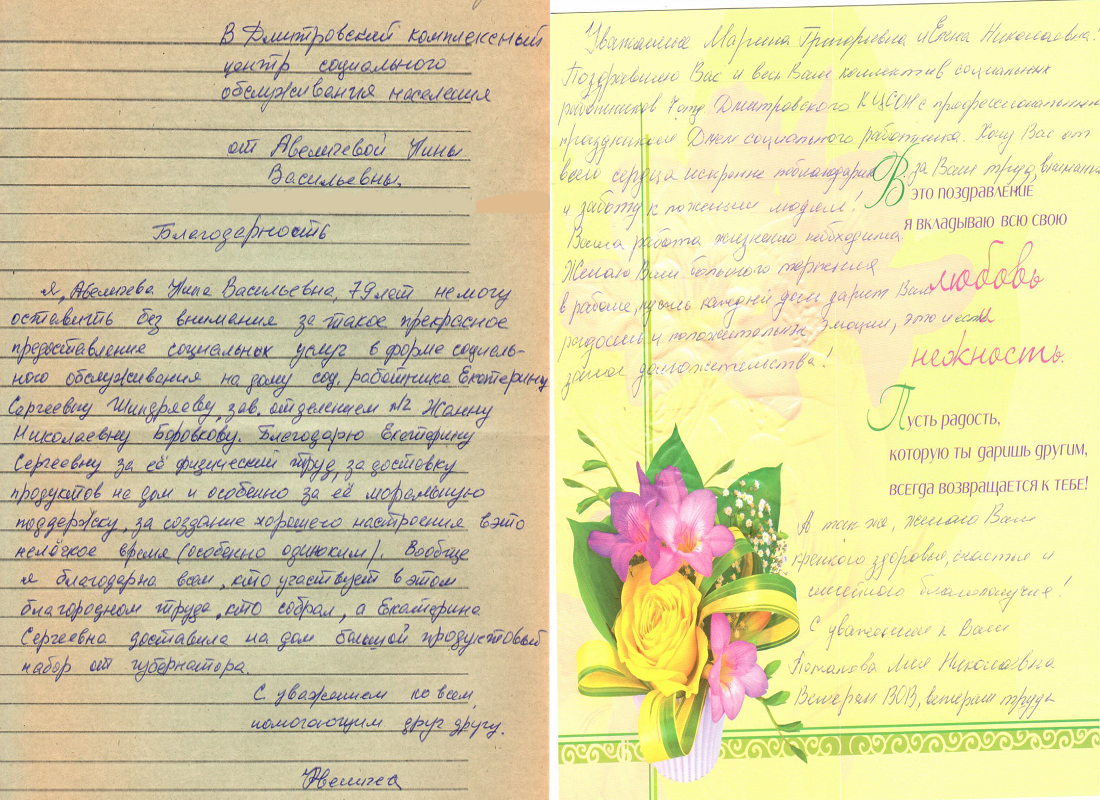 В Дмитровский комплексный
центр социального
обслуживания населения
от Авеличевой Нины
Васильевны.
Благодарность
Я, Авеличева Нина Васильевна, 79 лет не могу
оставить без внимания за такое прекрасное
предоставление социальных услуг в форме социаль-
ного обслуживания на дому соц. работника Екатерину
Сергеевну Шиндряеву, зав. отделением №2 Жанну
Николаевну Боровкову. Благодарю Екатерину
Сергеевну за её физический труд, за доставку
продуктов на дом и особенно за её моральную
поддержку, за создание хорошего настроения в это
нелёгкое время (особенно одиноким). Вообще
я благодарна всем, кто участвует в этом
благородном труде, кто собрал, а Екатерина
Сергеевна доставила на дом большой продуктовый
набор от губернатора.
С уважением ко всем,
помогающим друг другу.
Авеличева
Уважаемые Марина Григорьевна и Елена Николаевна!
Поздравляю Вас и весь Ваш коллектив социальных
работников 4 отд. Дмитровского КЦСОН с профессиональным
праздником Днем социального работника. Хочу Вас от
всего сердца искренне поблагодарить за Ваш труд, внимание
и заботу к пожилым людям!
Ваша работа жизненно необходима.
Желаю Вам большого терпения
в работе, пусть каждый день дарит Вам
радость и положительные эмоции, это и есть
залог долгожительства!
В это поздравление
я вкладываю всю свою
любовь
и
нежность.
Пусть радость,
которую ты даришь другим,
всегда возвращается к тебе!
А так же, желаю Вам
крепкого здоровья, счастья и
семейного благополучия!
С уважением к Вам
Потапова Лия Николаевна
Ветеран ВОВ, ветеран труда